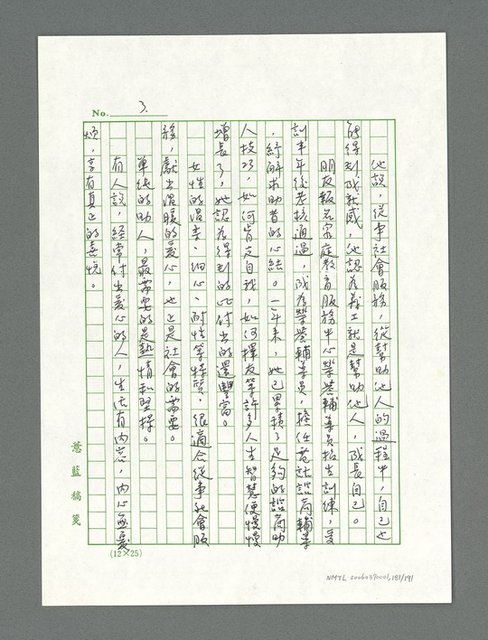 No. 3.
她說，從事社會服務，從幫助他人的過程中，自己也
能得到成就感，她認為義工就是幫助他人，成長自己。
朋友報名家庭教育服務中心榮譽輔導員招生訓練，受
訓半年後考核通過，成為榮譽輔導員，擔任電話諮商輔導
，紓解求助者的心結。一年來，她已累積了足夠的諮商助
人技巧，如何肯定自我，如何擇友等許多人生智慧便慢慢
增長了，她認為得到的比付出的還豐富。
女性的溫柔、細心、耐性等特質，很適合從事社會服
務，獻出溫暖的愛心，也正是社會的需要。
單純的助人，最需要的是熱情和堅持。
有人說，經常付出愛心的人，生活有內容，內心無憂
煩，享有真正的喜悅。
薏藍稿箋
(12×25)
NMTL 20060390001,181/191